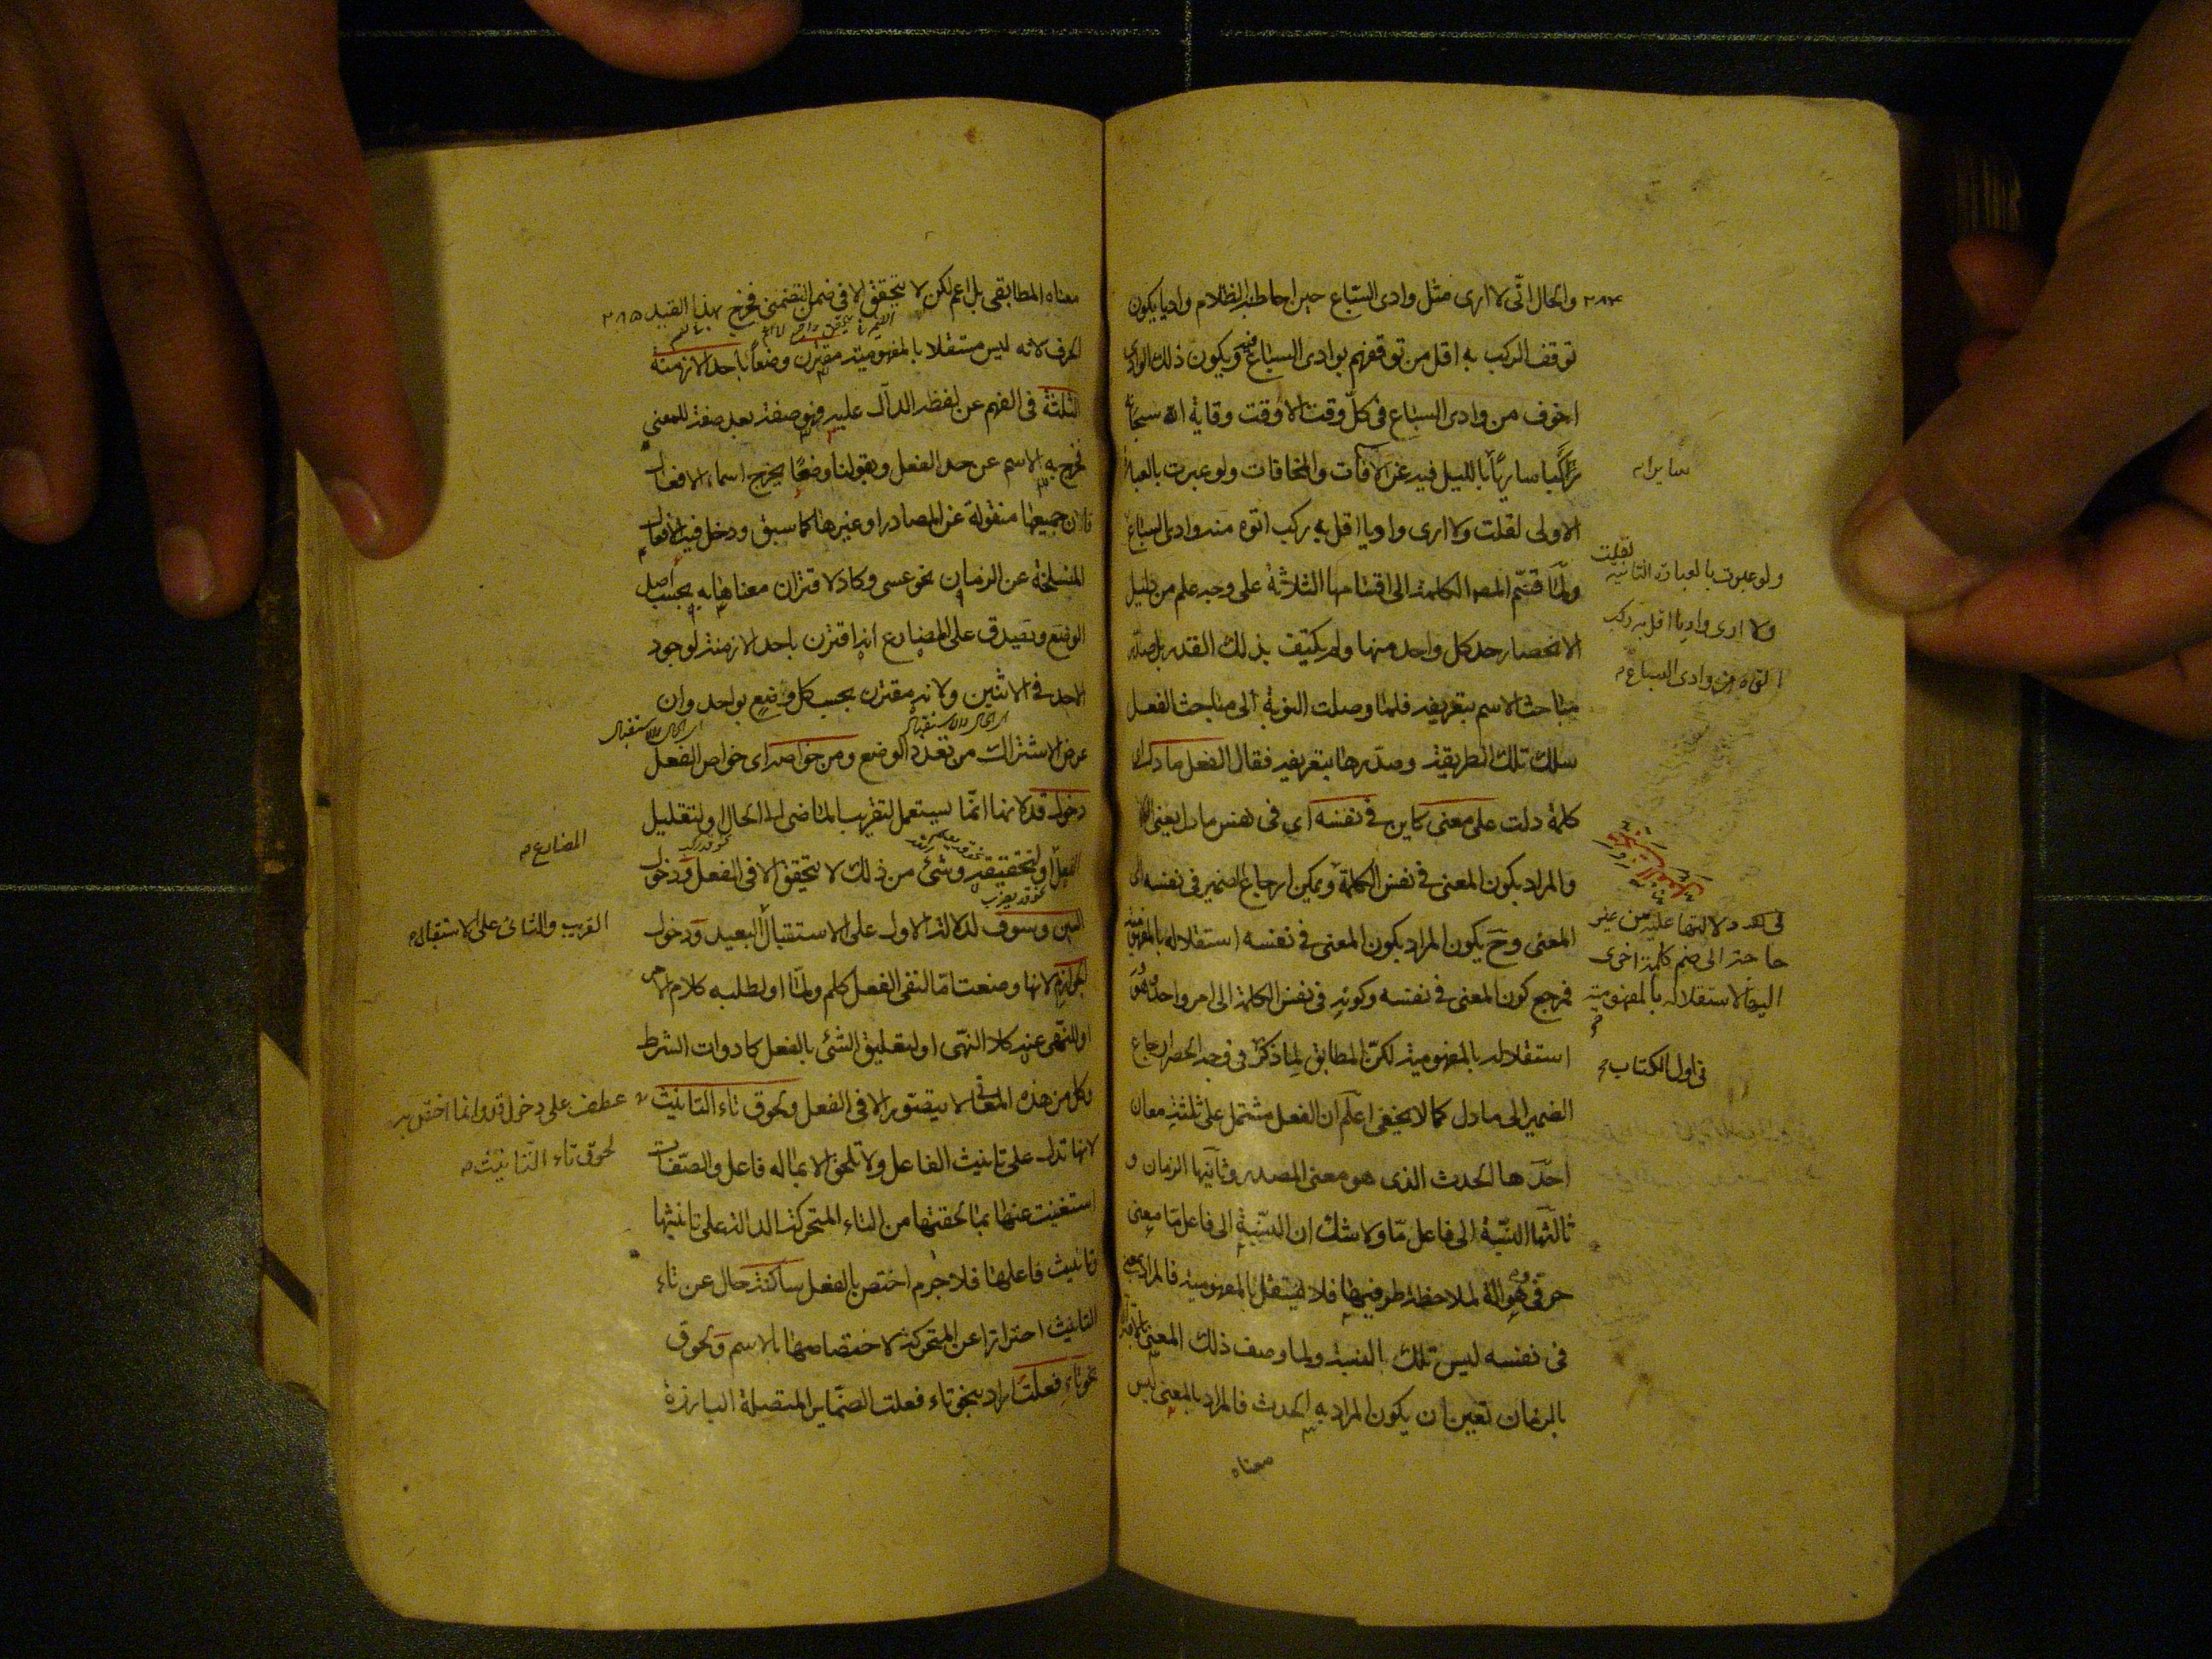 ٢٨٤ والحال انّي لا ارى مثل وادى السّباع حين احاطه الظلام واديا يكون
توقف الركب به اقل من توقفهم بوادى السباع ويكون ذلك الوادى
اخوف من وادى السباع فى كلّ وقت الا وقت وقاية الله سبحانه
ركبا ساريًا بالليل فيه عن الآفات والمخافات ولو عبرت بالعبارة
الاولى لقلت ولا ارى واديا اقل به ركب اتوه منه وادى السباع
ولمّا قسّم المصه الكلمة الى اقسامها الثلاثة على وجه علم من دليل
الانحصار حد كل واحد منها ولم يكتف بذلك القدر بل صدّر
مباحث الاسم بتعريفه فلمّا وصلت النوبة الى مباحث الفعل
سلك تلك الطريقة وصدّرها بتعريفه فقال الفعل ما دل اى
كلمة دلت على معنى كاين فى نفسه اى فى نفس ما دل يعنى
والمراد بكون المعنى فى نفس الكلمة ويمكن ارجاع الضمير فى نفسه الى
المعنى وحَ يكون المراد بكون المعنى فى نفسه استقلاله بالمفهومية
فمرجع كون المعنى فى نفسه وكونه فى نفس الكلمة الى امر واحد وهو
استقلاله بالمفهومية لكن المطابق لما ذكر فى وجه الحصر ارجاع
الضمير الى ما دل كما لا يخفى اعلم ان الفعل مشتمل على ثلثة معان
احدها الحدث الذى هو معنى المصدر وثانيها الزمان و
ثالثها النسبة الى فاعل مّا ولا شك ان النسبة الى فاعل مّا معنى
حرفى هو آلة لملاحظة طرفيها فلا تستقل بالمفهومية فالمراد بمعنى
فى نفسه ليس تلك النسبة ولما وصف ذلك المعنى بالاقتران
بالزمان تعين ان يكون المراد به الحدث فالمراد بالمعنى ليس
معناه
سايرا م
ولو عبرت بالعبارة الثانية لقلت
ولا ارى واديا اقل به ركب
اتوه من وادى السباع م
فى حد دلالتها عليه من غير
حاجة الى ضم كلمة اخرى
اليها لاستقلاله بالمفهومية
فى اول الكتاب م
معناه المطابقى بل اعم لكن لا يتحقق الا فى ضمن التضمنى فخرج بهذا القيد ٢٨٥
الحرف لانه ليس مستقلا بالمفهومية مقترن وضعًا باحد الازمنة
الثلثة فى الفهم عن لفظه الدال عليه فهو صفة بعد صفة للمعنى
فخرج به الاسم عن حد الفعل وبقولنا وضعًا يخرج اسماء الافعال
لان جميعها منقولة عن المصادر او غيرها كما سبق ودخل فيه الافعال
المنسلخة عن الزمان نحو عسى وكاد لاقتران معناها به بحسب اصل
الوضع ويصدق على المضارع انه اقترن باحد الازمنة لوجود
الاحد فى الاثنين ولانه مقترن بحسب كل وضع بواحد وان
عرض الاشتراك من تعدد الوضع ومن خواصه اى خواص الفعل
دخول قد لانها انّما يستعمل لتقريب الماضى الى الحال او لتقليل
الفعل او لتحقيقه وشئ من ذلك لا يتحقق الا فى الفعل ودخول
السين وسوف لدلالة الاول على الاستقبال البعيد ودخول
الجوازم لانها وضعت امّا لنفى الفعل كلم ولمّا او لطلبه كلام الامر
او للنّهى عنه كلا النّهى او لتعليق الشئ بالفعل كادوات الشرط
وكل من هذه المعانى لا يتصور الا فى الفعل ولحوق تاء التانيث
لانها تدل على تانيث الفاعل ولا تلحق الا بما له فاعل والصفات
استغنيت عنها بما لحقتها من التاء المتحركة الدالة على تانيثها
تانيث فاعلها فلا جرم اختص بالفعل ساكنة حال عن تاء
التانيث احترازا عن المتحركة لاختصاصها بالاسم ولحوق
نحو تاء فعلت اراد بنحو تاء فعلت الضماير المتصلة البارزة
اى الحال والاستقبال
اى الحال والاستقبال
المضارع م
القريب والثانى على الاستقبال م
عطف على دخول قد وانما اختص به
لحوق تاء التانيث م